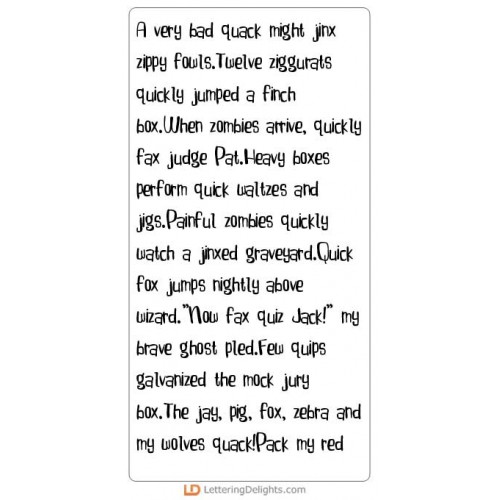 A very bad quack might jinx
zippy fowls.Twelve ziggurats
quickly jumped a finch
box.When zombies arrive, quickly
fax judge Pat.Heavy boxes
perform quick waltzes and
jigs.Painful zombies quickly
watch a jinxed graveyard.Quick
fox jumps nightly above
wizard."Now fax quiz Jack!" my
brave ghost pled.Few quips
galvanized the mock jury
box.The jay, pig, fox, zebra and
my wolves quack!Pack my red
LD LetteringDelights.com